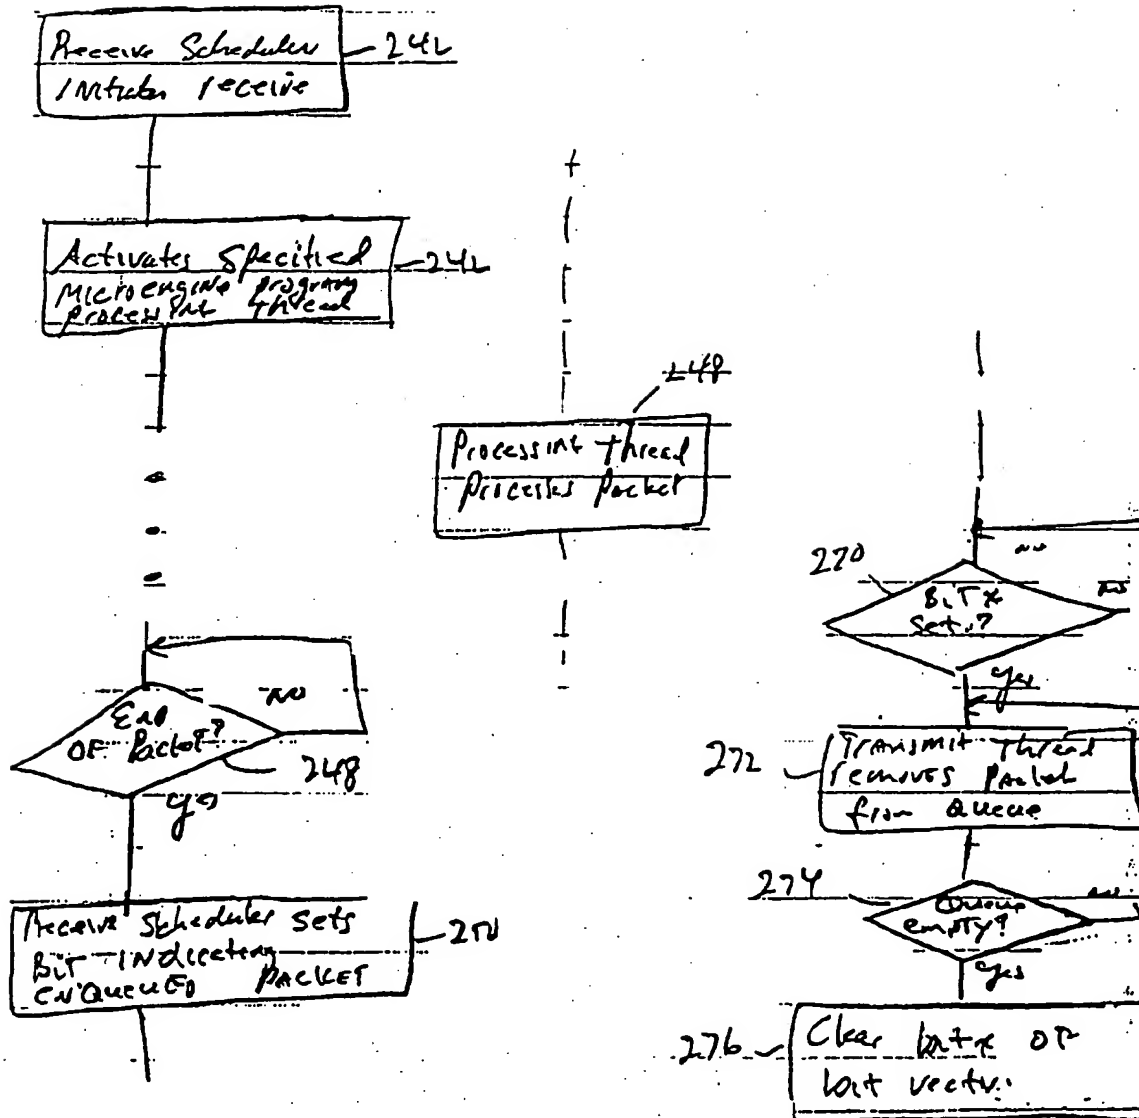 Receive Scheduler
Initiates receive
242
Activates Specified
Microengine program
processing thread
242
248
Processing thread
processes packet
End
OF Packet?
NO
248
yes
Receive Scheduler sets
Bit indicating
enqueued PACKET
250
270
Bit x
Set?
no
no
yes
272
Transmit thread
removes packet
from Queue
274
Queue
empty?
no
yes
276
Clear bit x OF
bit vector